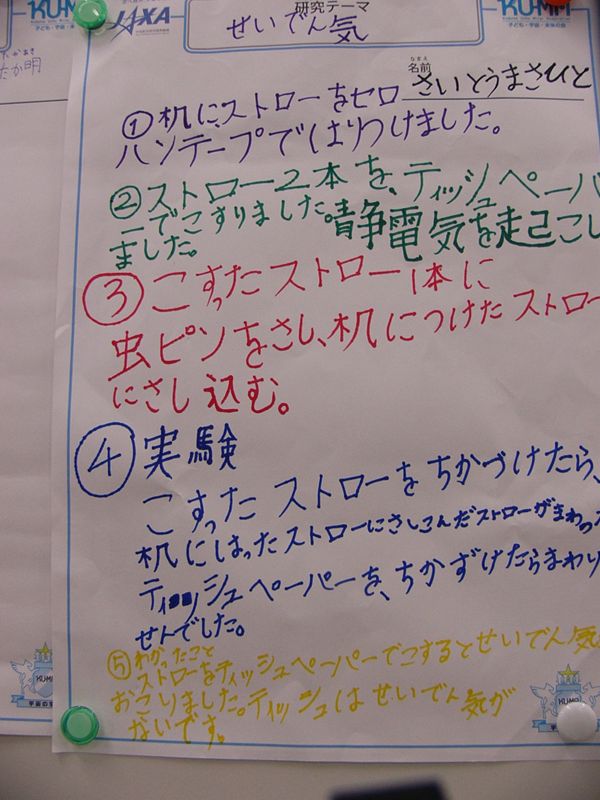 KU-MA
JAXA
研究テーマ
せいでん気
たかあき
たか明
なまえ
名前
さいとうまさひと
①机にストローをセロ
ハンテープではりつけました。
②ストロー2本を、ティッシュペーパ
ーでこすりました。静電気を起こし
ました。
③こすったストロー1本に
虫ピンをさし、机につけたストロー
にさし込む。
④実験
こすったストローをちかづけたら、
机にはったストローにさしこんだストローがまわっ
ティッシュペーパーを、ちかずけたらまわり
せんでした。
⑤わかったこと
ストローをティッシュペーパーでこするとせいでん気
おこりました。ティッシュはせいでん気が
ないです。
KU-MA
KU-MA